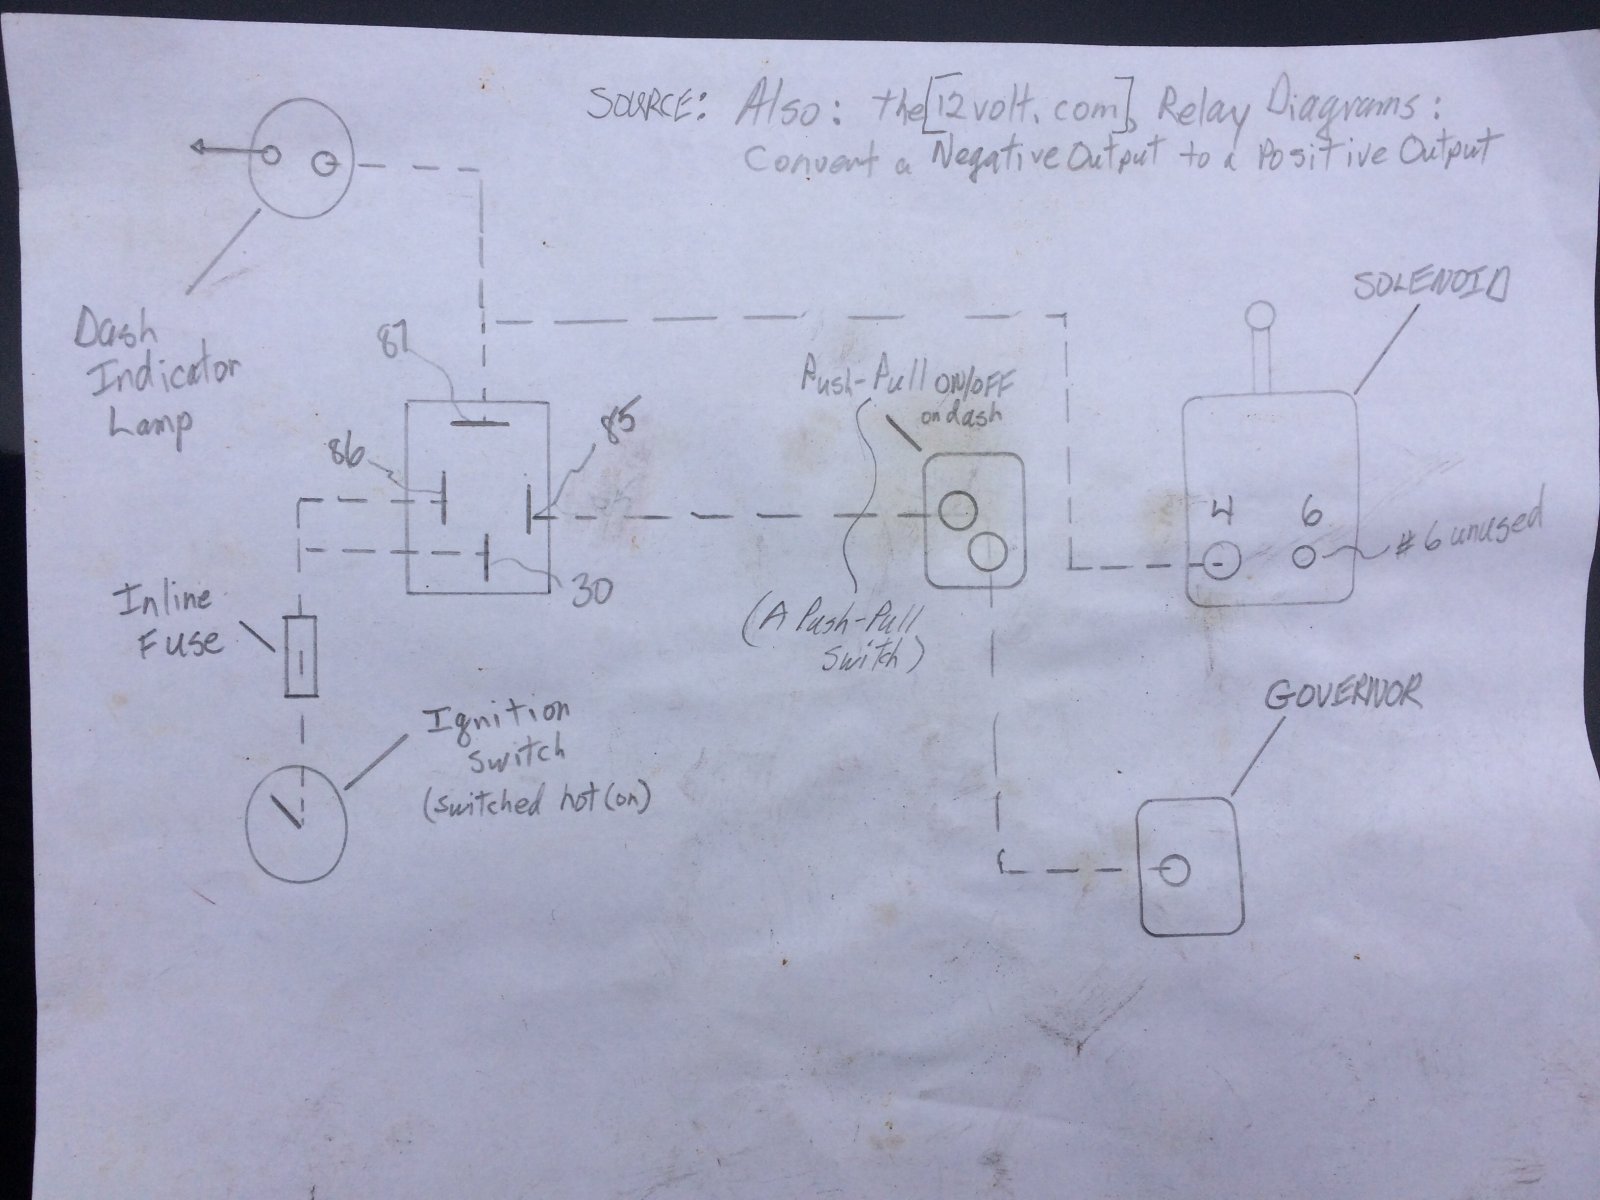 SOURCE: Also: the[12volt.com], Relay Diagrams:
Convert a Negative Output to a Positive Output
SOLENOID
Dash
Indicator
Lamp
87
Push-Pull ON/OFF
on dash
86
85
4 6
#6 unused
30
Inline
Fuse
(A Push-Pull
Switch)
GOVERNOR
Ignition
Switch
(switched hot (on)